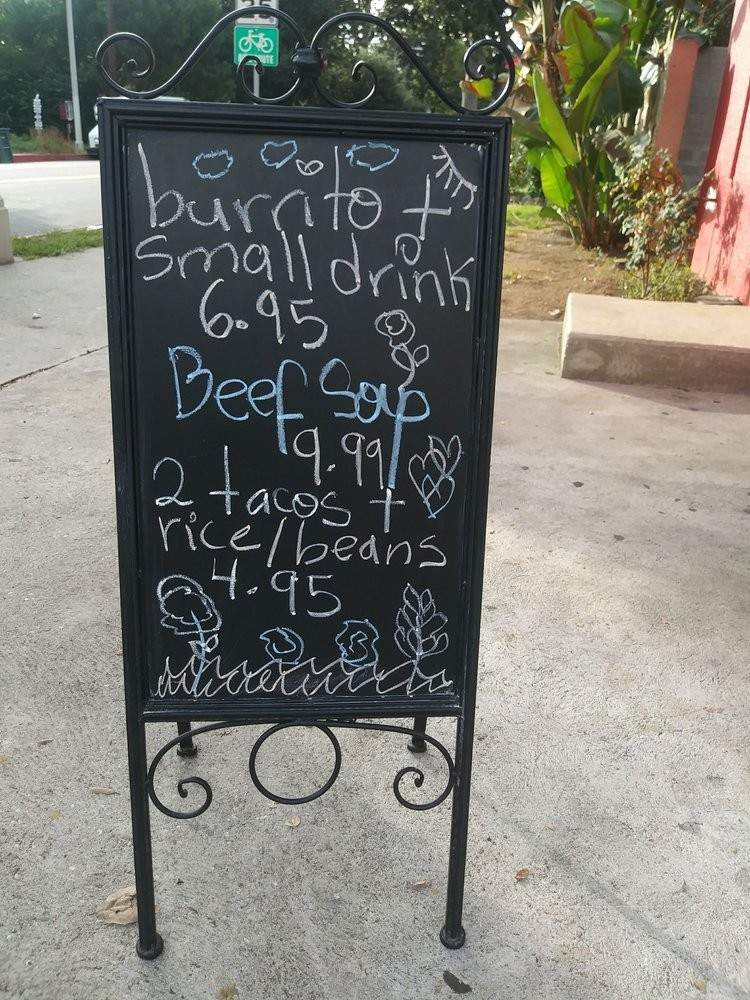 burrito +
small drink
6.95
Beef Soup
9.99
2 tacos +
rice/beans
4.95